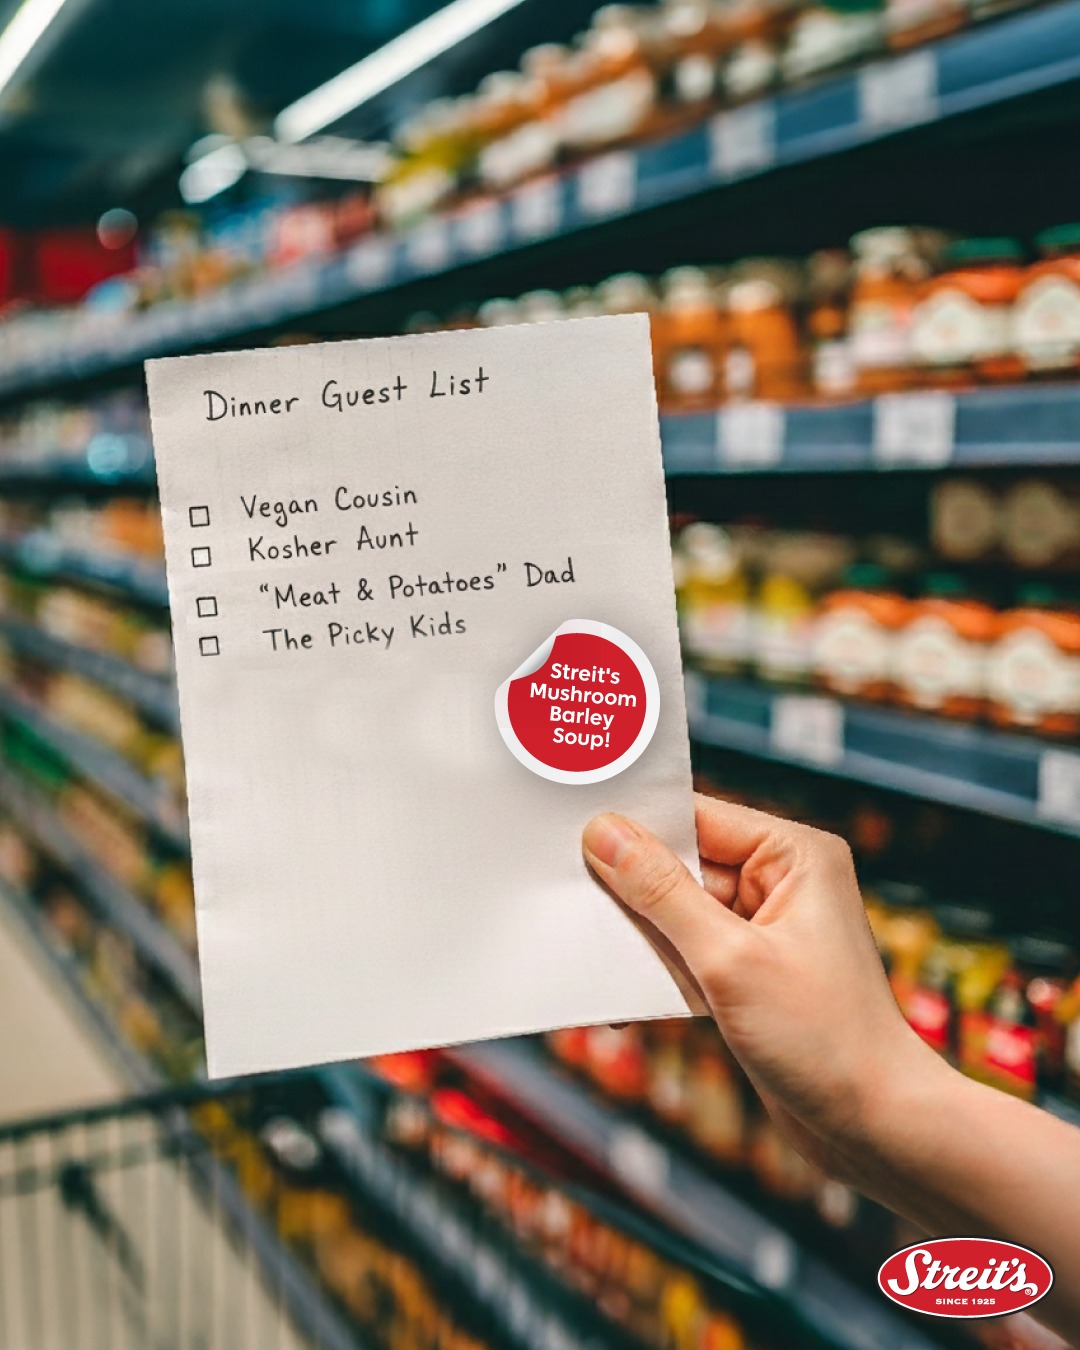 Dinner Guest List
Vegan Cousin
Kosher Aunt
“Meat & Potatoes” Dad
The Picky Kids
Streit's
Mushroom
Barley
Soup!
Streit's®
SINCE 1925